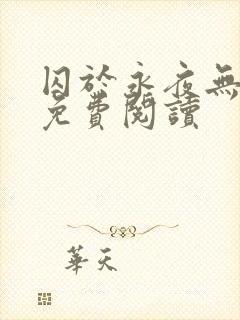 囚於永夜無
免費閱讀
華天